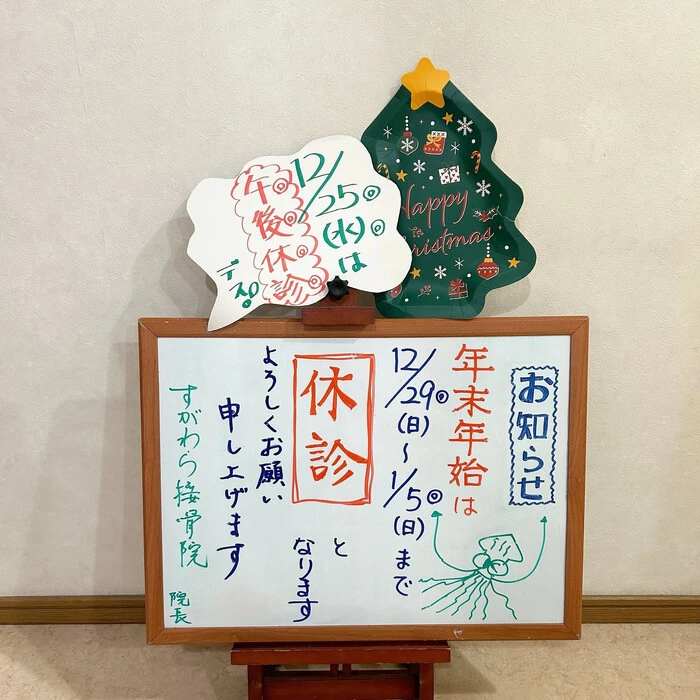 12/25(水)は
午後休診
デス
Happy
Christmas
お知らせ
年末年始は
12/29(日)〜1/5(日)まで
休診
となります
よろしくお願い
申し上げます
すがわら接骨院
院長